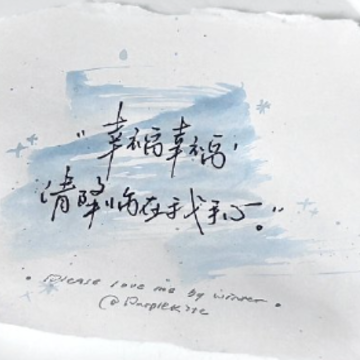 “幸福幸福,
请降临在我手心。”
Please love me by winter.